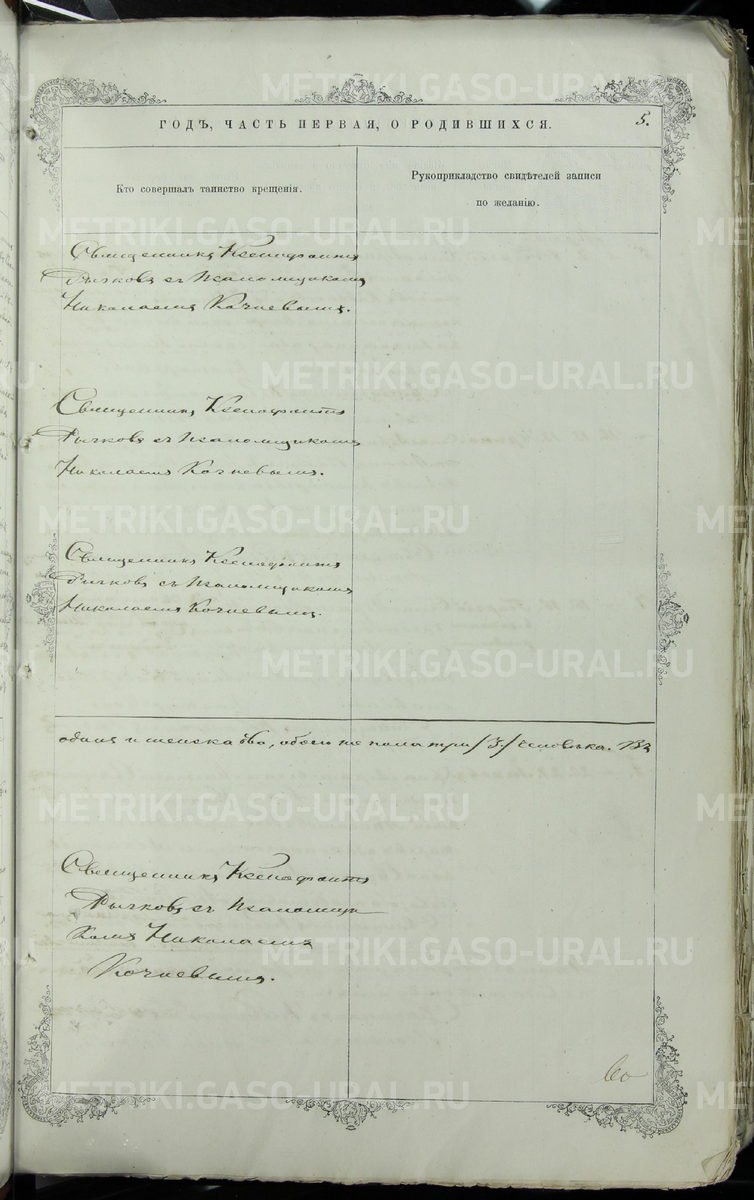 ГОДЪ, ЧАСТЬ ПЕРВАЯ, О РОДИВШИХСЯ.
5.
Кто совершалъ таинство крещенія.
Рукоприкладство свидѣтелей записи
по желанію.
Священникъ Ксенофонтъ
Рычковъ съ псаломщикомъ
Николаемъ Кочневымъ.
Священникъ Ксенофонтъ
Рычковъ съ псаломщикомъ
Николаемъ Кочневымъ.
Священникъ Ксенофонтъ
Рычковъ съ псаломщикомъ
Николаемъ Кочневымъ.
одинъ и женска два, обоего же пола три /3./ человѣка.
Священникъ Ксенофонтъ
Рычковъ съ псаломщи-
комъ Николаемъ
Кочневымъ.
METRIKI.GASO-URAL.RU